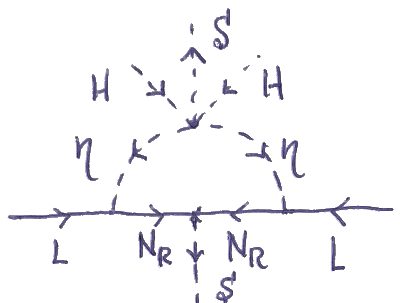 S
H H
η η
L N_R N_R L
S